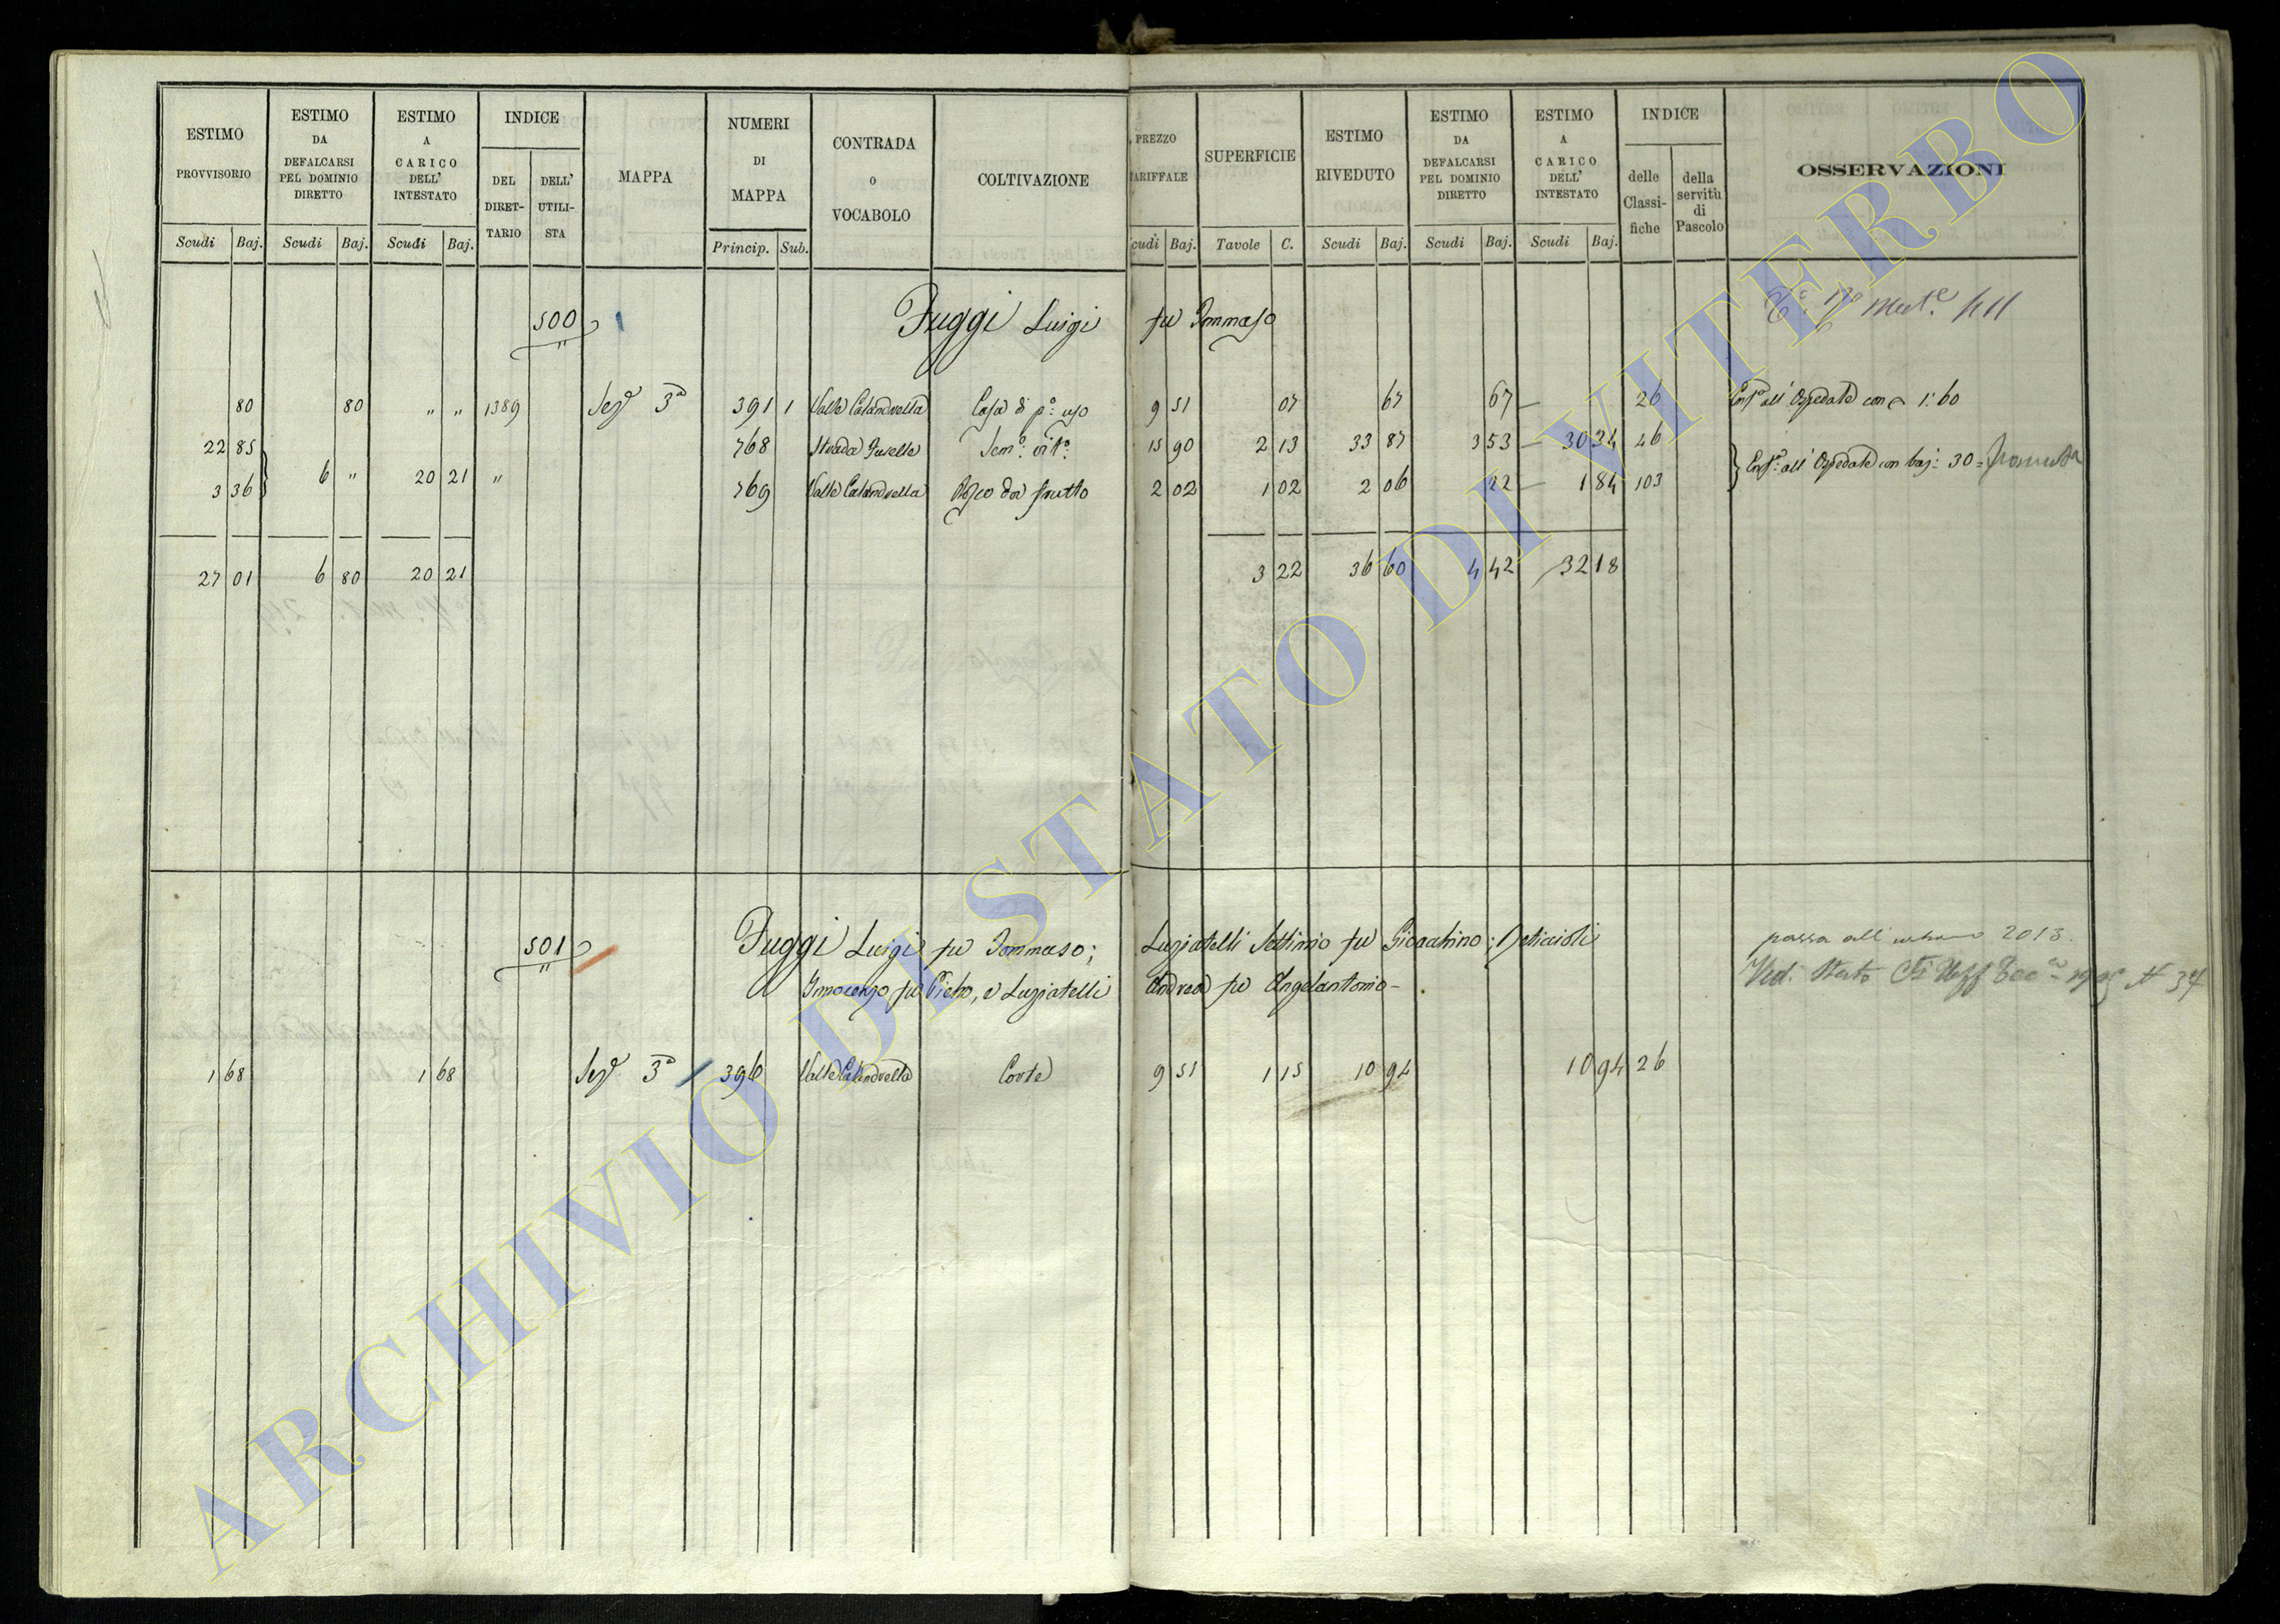 ESTIMO PROVVISORIO
ESTIMO DA DEFALCARSI PEL DOMINIO DIRETTO
ESTIMO A CARICO DELL' INTESTATO
INDICE
DEL DIRET-TARIO
DELL' UTILI-STA
MAPPA
NUMERI DI MAPPA
CONTRADA O VOCABOLO
COLTIVAZIONE
PREZZO TARIFFALE
SUPERFICIE
ESTIMO RIVEDUTO
ESTIMO DA DEFALCARSI PEL DOMINIO DIRETTO
ESTIMO A CARICO DELL' INTESTATO
INDICE
delle Classi-fiche
della servitù di Pascolo
OSSERVAZIONI
Scudi Baj. Scudi Baj. Scudi Baj. Princip. Sub. Scudi Baj. Tavole C. Scudi Baj. Scudi Baj. Scudi Baj.
500 Fuggi Luigi fu Tommaso
80 80 " " 1389 Seze 3a 391 1 Valle Calandrella Casa di po: uso 9 51 07 67 67 — 26 all' Ospedale con 1:60
22 85 768 Strada 15 90 2 13 33 87 3 53 — 30 34 46
6 " 20 21 " all' Ospedale con baj: 30 =
3 36 769 Valle Calandrella Bosco da frutto 2 02 1 02 2 06 22 — 1 84 103
27 01 6 80 20 21 3 22 36 60 4 42 32 18
501 Fuggi Luigi fu Tommaso; Luziatelli Settimio fu Gioacchino;
Innocenzo fu Pietro, e Luziatelli Andrea fu Angelantonio -
passa all' urbano 2013.
1 68 1 68 Seze 3a 396 Valle Calandrella Corte 9 51 1 15 10 94 10 94 26
ARCHIVIO DI STATO DI VITERBO